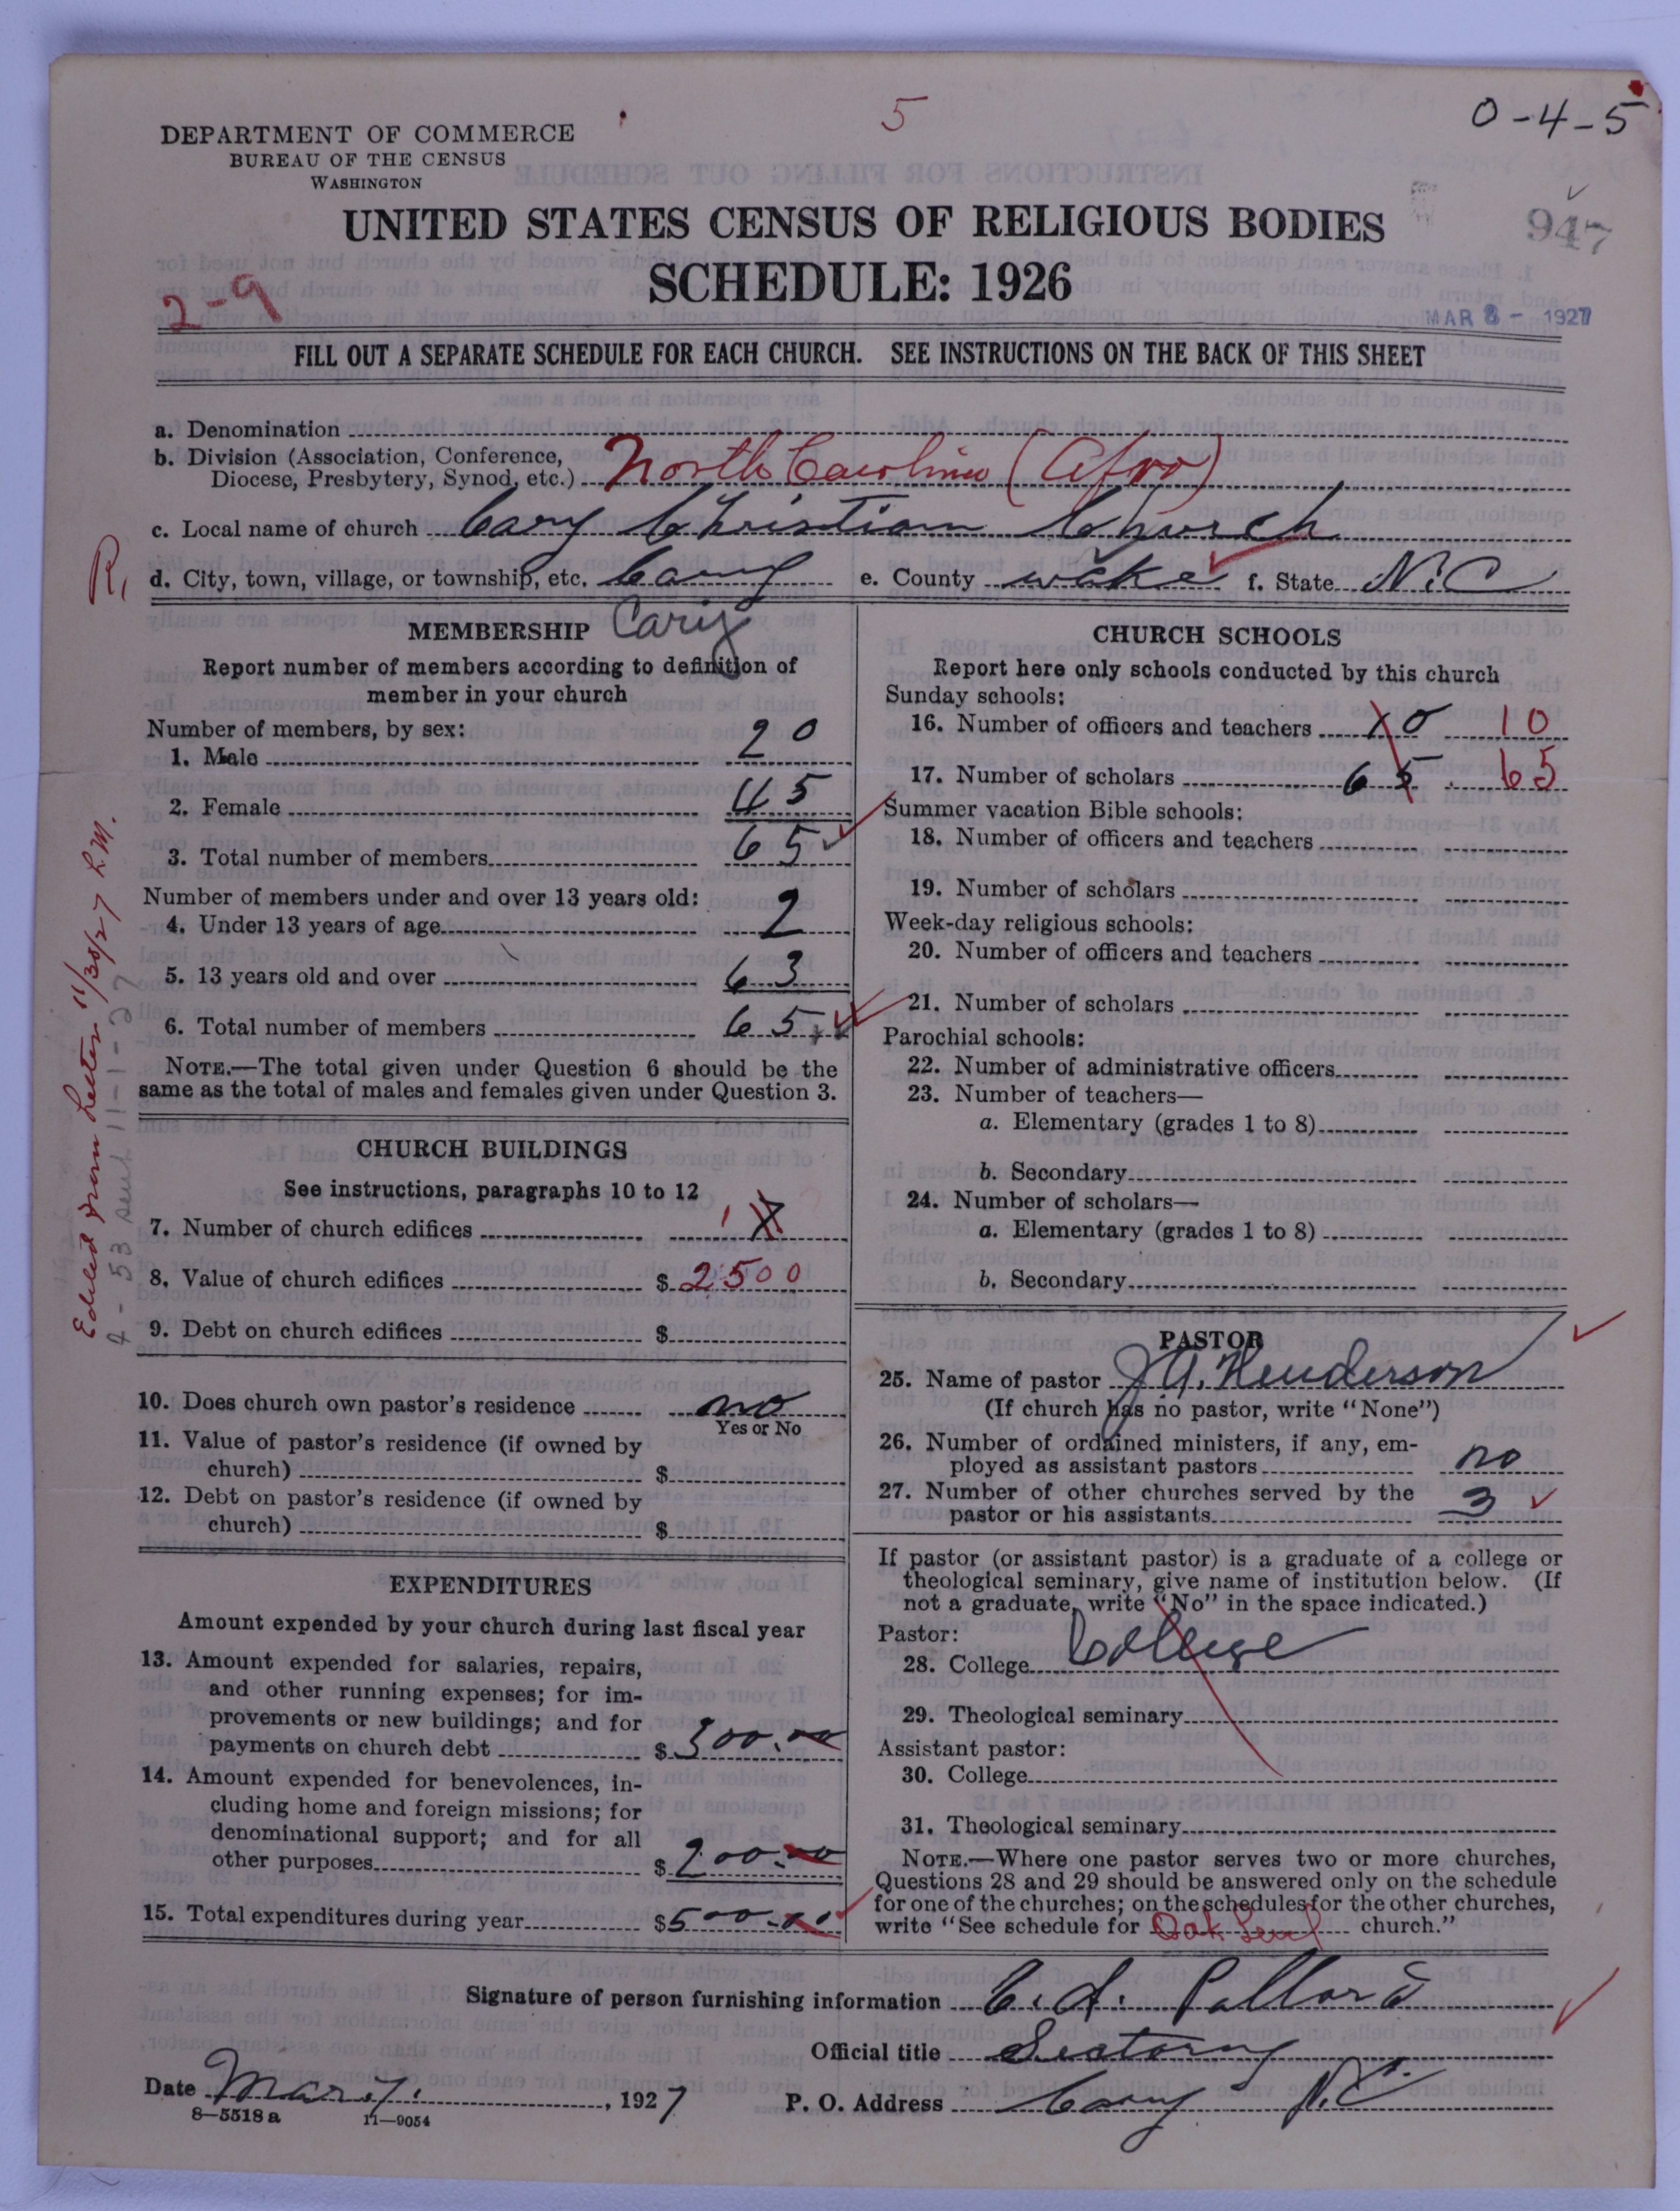 5
0-4-5
DEPARTMENT OF COMMERCE
BUREAU OF THE CENSUS
WASHINGTON
UNITED STATES CENSUS OF RELIGIOUS BODIES
947
SCHEDULE: 1926
2-9
MAR 8 - 1927
FILL OUT A SEPARATE SCHEDULE FOR EACH CHURCH. SEE INSTRUCTIONS ON THE BACK OF THIS SHEET
a. Denomination
b. Division (Association, Conference,
Diocese, Presbytery, Synod, etc.) North Carolina (Afro)
c. Local name of church Cary Christian Church
R,
d. City, town, village, or township, etc. Cary e. County wake f. State N.C
MEMBERSHIP Cary
Report number of members according to definition of
member in your church
Number of members, by sex:
1. Male 20
2. Female 45
3. Total number of members 65
Number of members under and over 13 years old:
4. Under 13 years of age 2
5. 13 years old and over 63
6. Total number of members 65
NOTE.—The total given under Question 6 should be the
same as the total of males and females given under Question 3.
Edited from Letter 11/30/27 L.M.
sent 11-1-27
CHURCH BUILDINGS
See instructions, paragraphs 10 to 12
7. Number of church edifices 1
8. Value of church edifices $ 2500
9. Debt on church edifices $
10. Does church own pastor's residence no
Yes or No
11. Value of pastor's residence (if owned by
church) $
12. Debt on pastor's residence (if owned by
church) $
EXPENDITURES
Amount expended by your church during last fiscal year
13. Amount expended for salaries, repairs,
and other running expenses; for im-
provements or new buildings; and for
payments on church debt $ 300.00
14. Amount expended for benevolences, in-
cluding home and foreign missions; for
denominational support; and for all
other purposes $ 200.00
15. Total expenditures during year $ 500.00
CHURCH SCHOOLS
Report here only schools conducted by this church
Sunday schools:
16. Number of officers and teachers 10 10
17. Number of scholars 65 65
Summer vacation Bible schools:
18. Number of officers and teachers
19. Number of scholars
Week-day religious schools:
20. Number of officers and teachers
21. Number of scholars
Parochial schools:
22. Number of administrative officers
23. Number of teachers—
a. Elementary (grades 1 to 8)
b. Secondary
24. Number of scholars—
a. Elementary (grades 1 to 8)
b. Secondary
PASTOR
25. Name of pastor J.A. Henderson
(If church has no pastor, write "None")
26. Number of ordained ministers, if any, em-
ployed as assistant pastors no
27. Number of other churches served by the
pastor or his assistants 3
If pastor (or assistant pastor) is a graduate of a college or
theological seminary, give name of institution below. (If
not a graduate, write "No" in the space indicated.)
Pastor:
28. College College
29. Theological seminary
Assistant pastor:
30. College
31. Theological seminary
NOTE.—Where one pastor serves two or more churches,
Questions 28 and 29 should be answered only on the schedule
for one of the churches; on the schedules for the other churches,
write "See schedule for Oak church."
Signature of person furnishing information C. H. Pollard
Official title Sectory
Date Mar. 7. , 1927 P. O. Address Cary N.C.
8—5518 a 11—9054